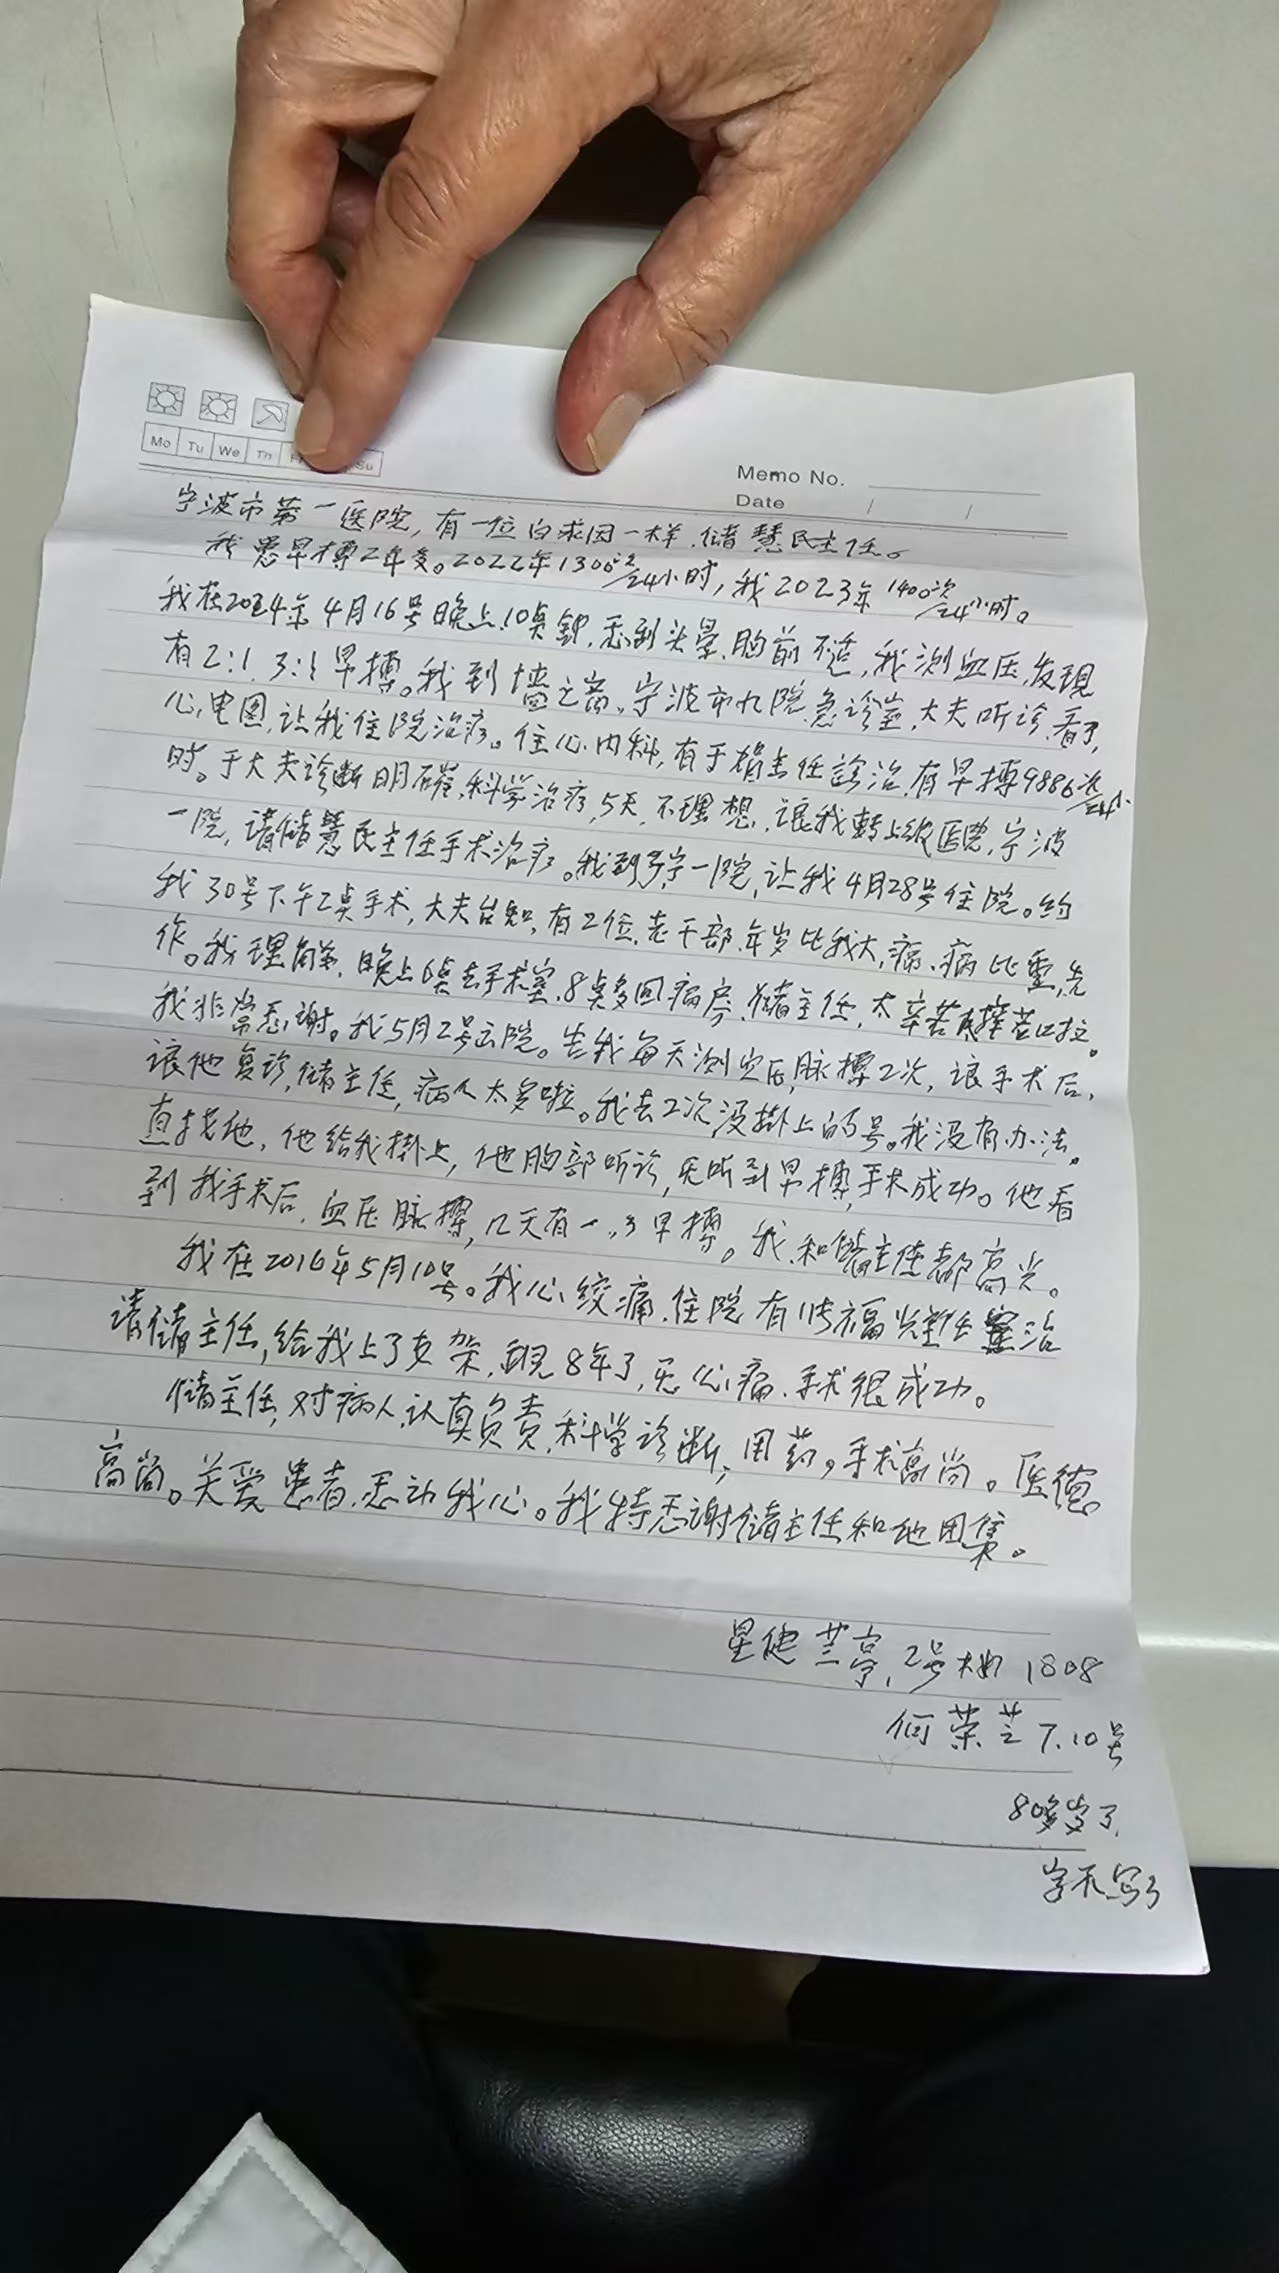 Mo Tu We Th Su
Memo No.
Date / /
宁波市第一医院,有一位白求恩一样,储慧民主任。
我患早搏2年多。2022年1300次/24小时,我2023年1400次/24小时。
我在2024年4月16号晚上10点钟,感到头晕,胸前不适,我测血压,发现
有2:1,3:1早搏。我到 宁波市九院急诊室,大夫听诊,看了,
心电图,让我住院治疗。住心内科,有于 主任诊治,有早搏9886次/24小
时。于大夫诊断明确,科学治疗,5天,不理想,让我转上级医院,宁波
一院,请储慧民主任手术治疗。我到 宁一院,让我4月28号住院。约
我30号下午2点手术,大夫告知,有2位,老干部,年岁比我大,病、病比重,先
作。我理解,晚上6点去手术室,8点多回病房,储主任,太辛苦
我非常感谢。我5月2号出院。告我每天测血压,脉搏2次,让手术后,
让他复诊,储主任,病人太多啦。我去2次没掛上的号。我没有办法。
直找他,他给我掛上,他胸部听诊,无听到早搏,手术成功。他看
到我手术后,血压脉搏,几天有一..3早搏。我和储主任都高兴。
我在2016年5月10号。我心绞痛,住院有 福 主任 治
请储主任,给我上了支架,现8年了,无心痛,手术很成功。
储主任,对病人,认真负责,科学诊断,用药,手术高尚。医德
高尚。关爱患者,感动我心。我特感谢储主任和他团队。
星健兰亭,2号 1808
何荣芝 7.10号
80多岁了
字不写了